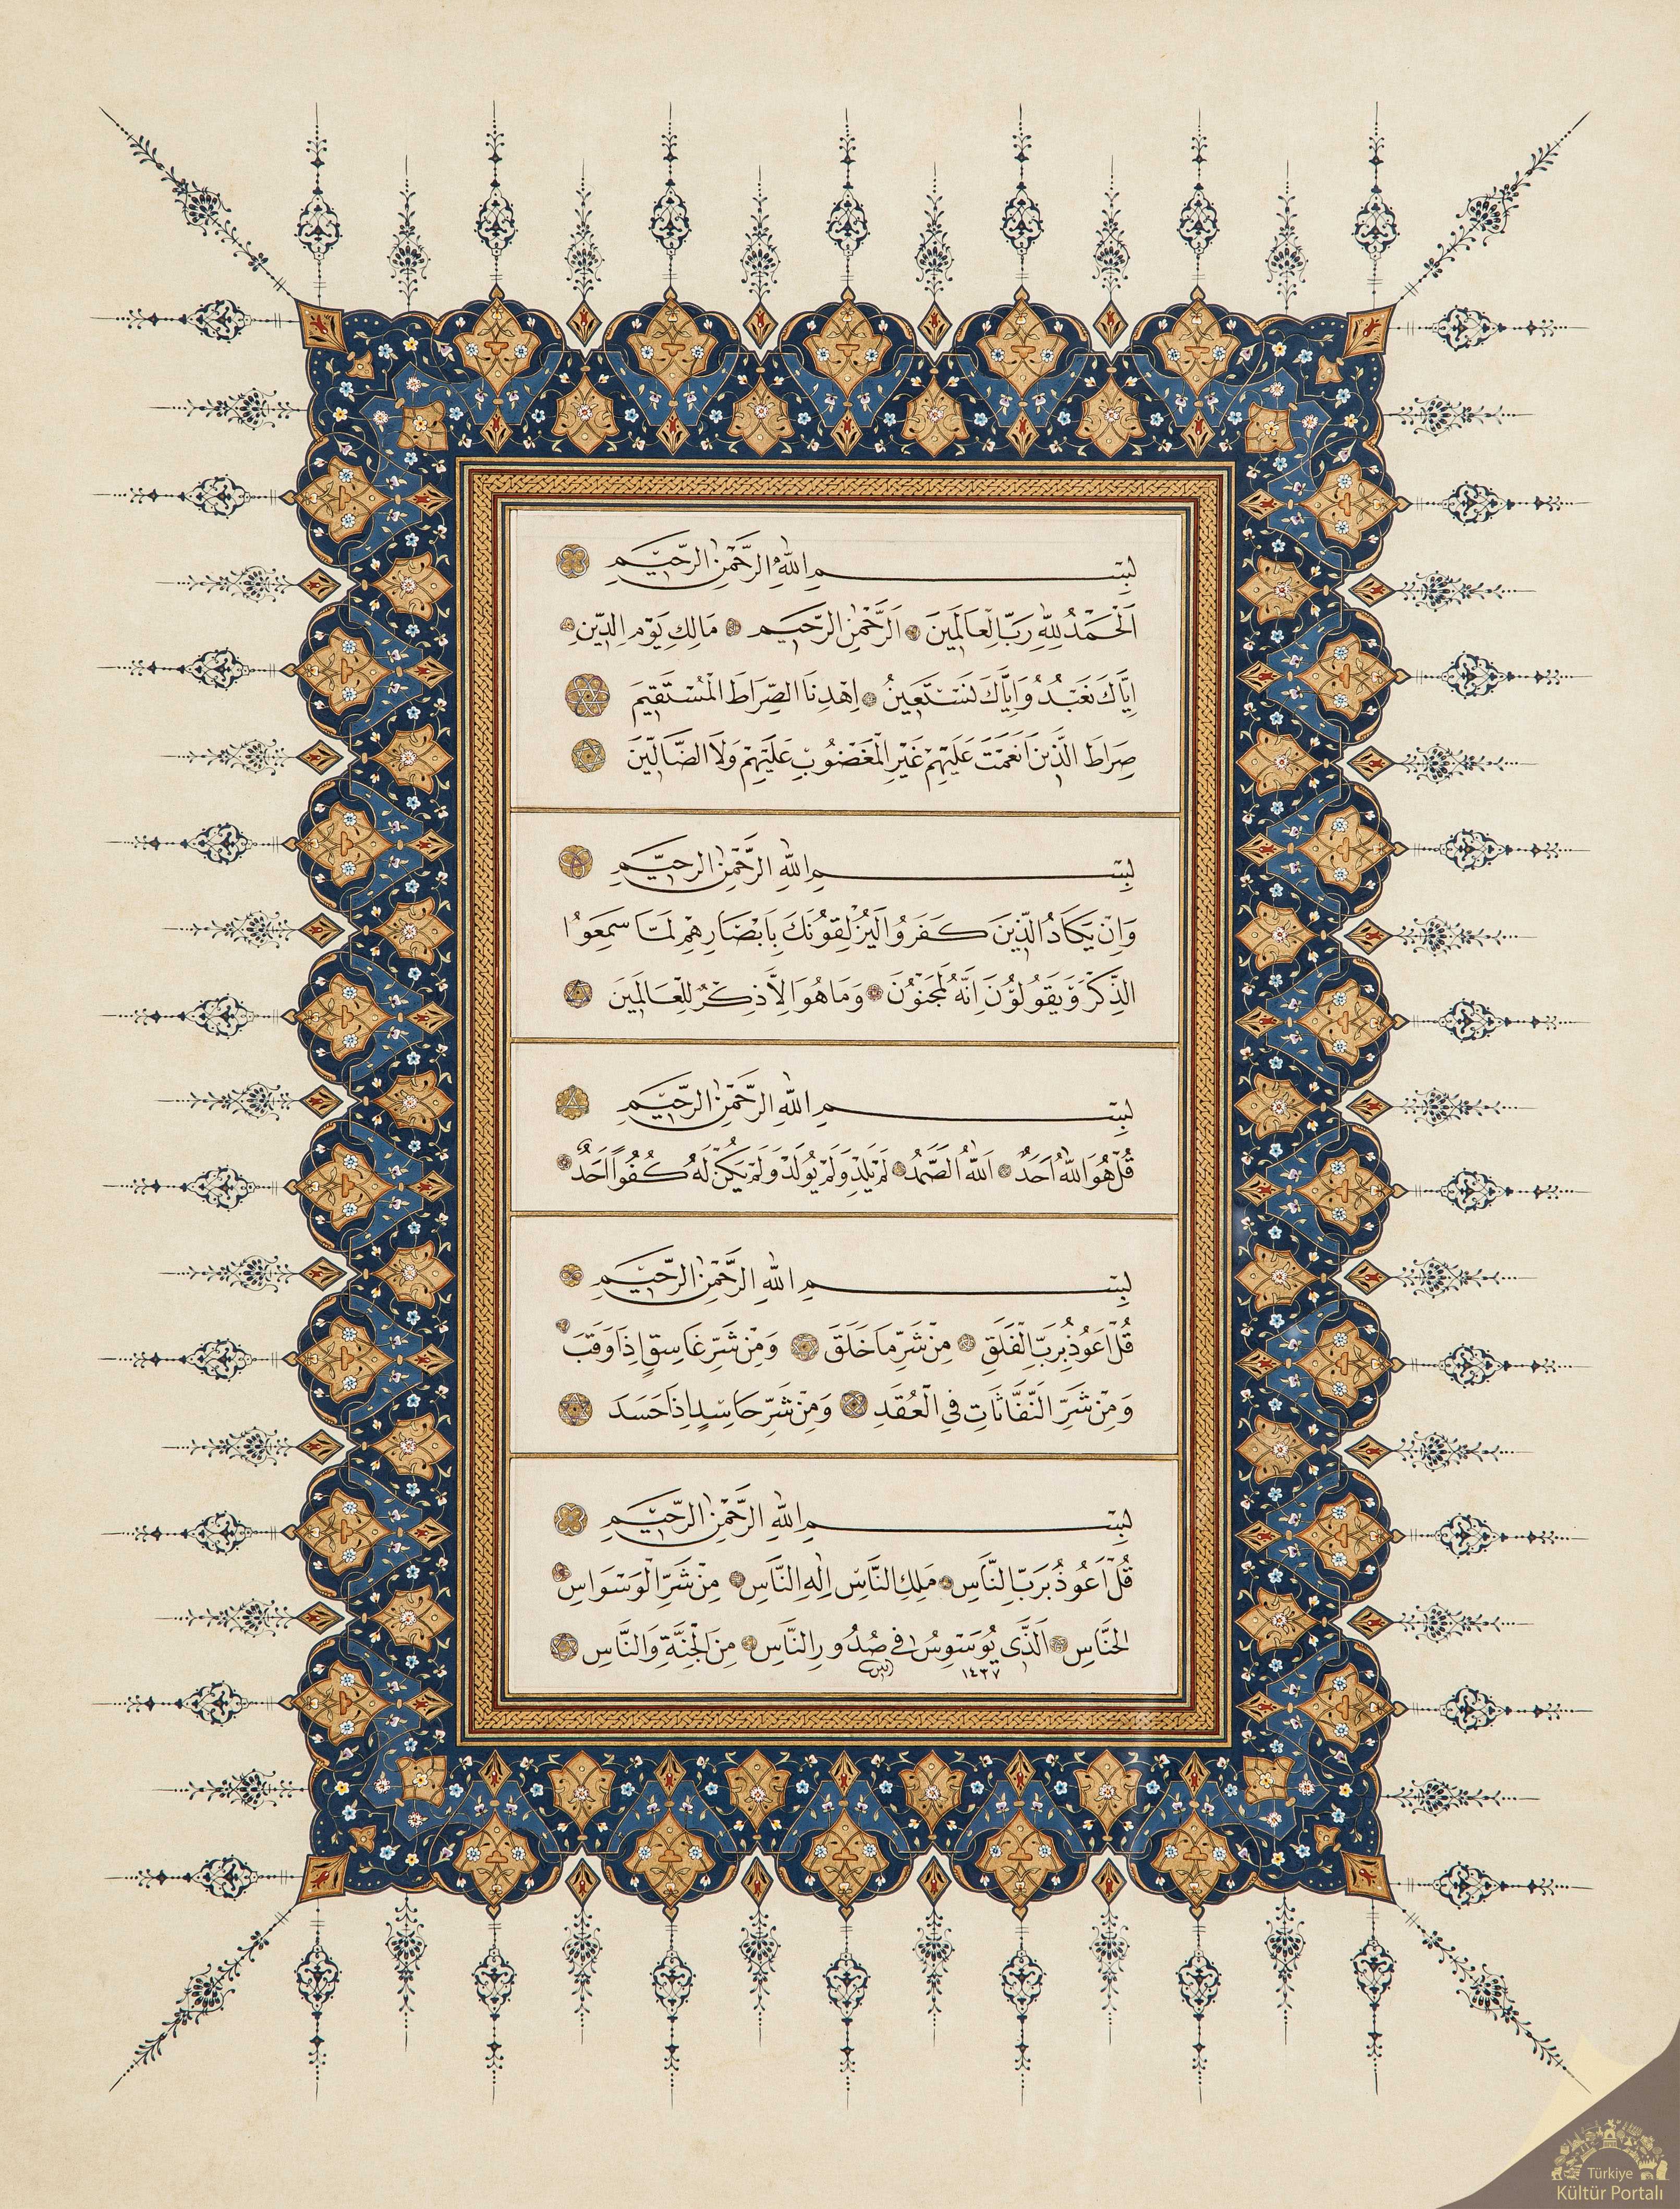 بِسْمِ اللّٰهِ الرَّحْمٰنِ الرَّحٖيمِ
اَلْحَمْدُ لِلّٰهِ رَبِّ الْعَالَمٖينَ اَلرَّحْمٰنِ الرَّحٖيمِ مَالِكِ يَوْمِ الدّٖينِ
اِيَّاكَ نَعْبُدُ وَاِيَّاكَ نَسْتَعٖينُ اِهْدِنَا الصِّرَاطَ الْمُسْتَقٖيمَ
صِرَاطَ الَّذٖينَ اَنْعَمْتَ عَلَيْهِمْ غَيْرِ الْمَغْضُوبِ عَلَيْهِمْ وَلَا الضَّالّٖينَ
بِسْمِ اللّٰهِ الرَّحْمٰنِ الرَّحٖيمِ
وَاِنْ يَكَادُ الَّذٖينَ كَفَرُوا لَيُزْلِقُونَكَ بِاَبْصَارِهِمْ لَمَّا سَمِعُوا
الذِّكْرَ وَيَقُولُونَ اِنَّهُ لَمَجْنُونٌ وَمَا هُوَ اِلَّا ذِكْرٌ لِلْعَالَمٖينَ
بِسْمِ اللّٰهِ الرَّحْمٰنِ الرَّحٖيمِ
قُلْ هُوَ اللّٰهُ اَحَدٌ اَللّٰهُ الصَّمَدُ لَمْ يَلِدْ وَلَمْ يُولَدْ وَلَمْ يَكُنْ لَهُ كُفُوًا اَحَدٌ
بِسْمِ اللّٰهِ الرَّحْمٰنِ الرَّحٖيمِ
قُلْ اَعُوذُ بِرَبِّ الْفَلَقِ مِنْ شَرِّ مَا خَلَقَ وَمِنْ شَرِّ غَاسِقٍ اِذَا وَقَبَ
وَمِنْ شَرِّ النَّفَّاثَاتِ فِي الْعُقَدِ وَمِنْ شَرِّ حَاسِدٍ اِذَا حَسَدَ
بِسْمِ اللّٰهِ الرَّحْمٰنِ الرَّحٖيمِ
قُلْ اَعُوذُ بِرَبِّ النَّاسِ مَلِكِ النَّاسِ اِلٰهِ النَّاسِ مِنْ شَرِّ الْوَسْوَاسِ
الْخَنَّاسِ اَلَّذٖي يُوَسْوِسُ فٖي صُدُورِ النَّاسِ مِنَ الْجِنَّةِ وَالنَّاسِ
١٤٣٧
Türkiye
Kültür Portalı